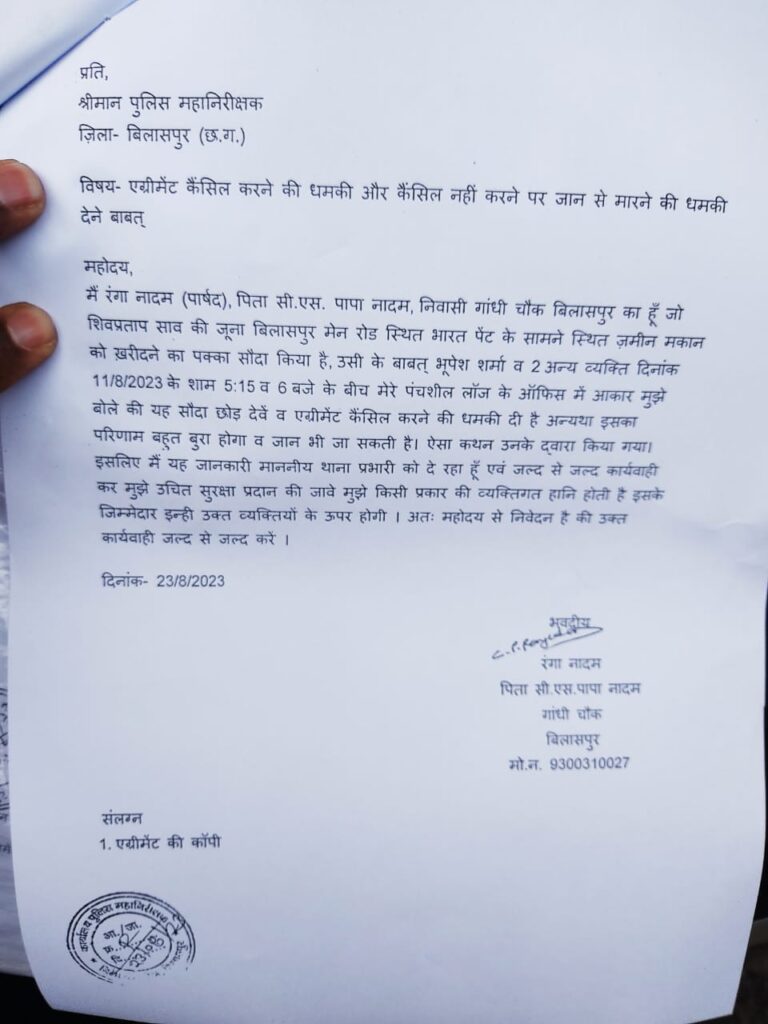 प्रति,
श्रीमान पुलिस महानिरीक्षक
ज़िला- बिलासपुर (छ.ग.)
विषय- एग्रीमेंट कैंसिल करने की धमकी और कैंसिल नहीं करने पर जान से मारने की धमकी
देने बाबत्
महोदय,
मैं रंगा नादम (पार्षद), पिता सी.एस. पापा नादम, निवासी गांधी चौक बिलासपुर का हूँ जो
शिवप्रताप साव की जूना बिलासपुर मेन रोड स्थित भारत पेंट के सामने स्थित ज़मीन मकान
को ख़रीदने का पक्का सौदा किया है, उसी के बाबत् भूपेश शर्मा व 2 अन्य व्यक्ति दिनांक
11/8/2023 के शाम 5:15 व 6 बजे के बीच मेरे पंचशील लॉज के ऑफिस में आकार मुझे
बोले की यह सौदा छोड़ देवें व एग्रीमेंट कैंसिल करने की धमकी दी है अन्यथा इसका
परिणाम बहुत बुरा होगा व जान भी जा सकती है। ऐसा कथन उनके द्वारा किया गया।
इसलिए मैं यह जानकारी माननीय थाना प्रभारी को दे रहा हूँ एवं जल्द से जल्द कार्यवाही
कर मुझे उचित सुरक्षा प्रदान की जावे मुझे किसी प्रकार की व्यक्तिगत हानि होती है इसके
जिम्मेदार इन्ही उक्त व्यक्तियों के ऊपर होगी । अतः महोदय से निवेदन है की उक्त
कार्यवाही जल्द से जल्द करें ।
दिनांक- 23/8/2023
भवदीय
रंगा नादम
पिता सी.एस.पापा नादम
गांधी चौक
बिलासपुर
मो.न. 9300310027
संलग्न
1. एग्रीमेंट की कॉपी
कार्यालय पुलिस महानिरीक्षक
आ./जा.